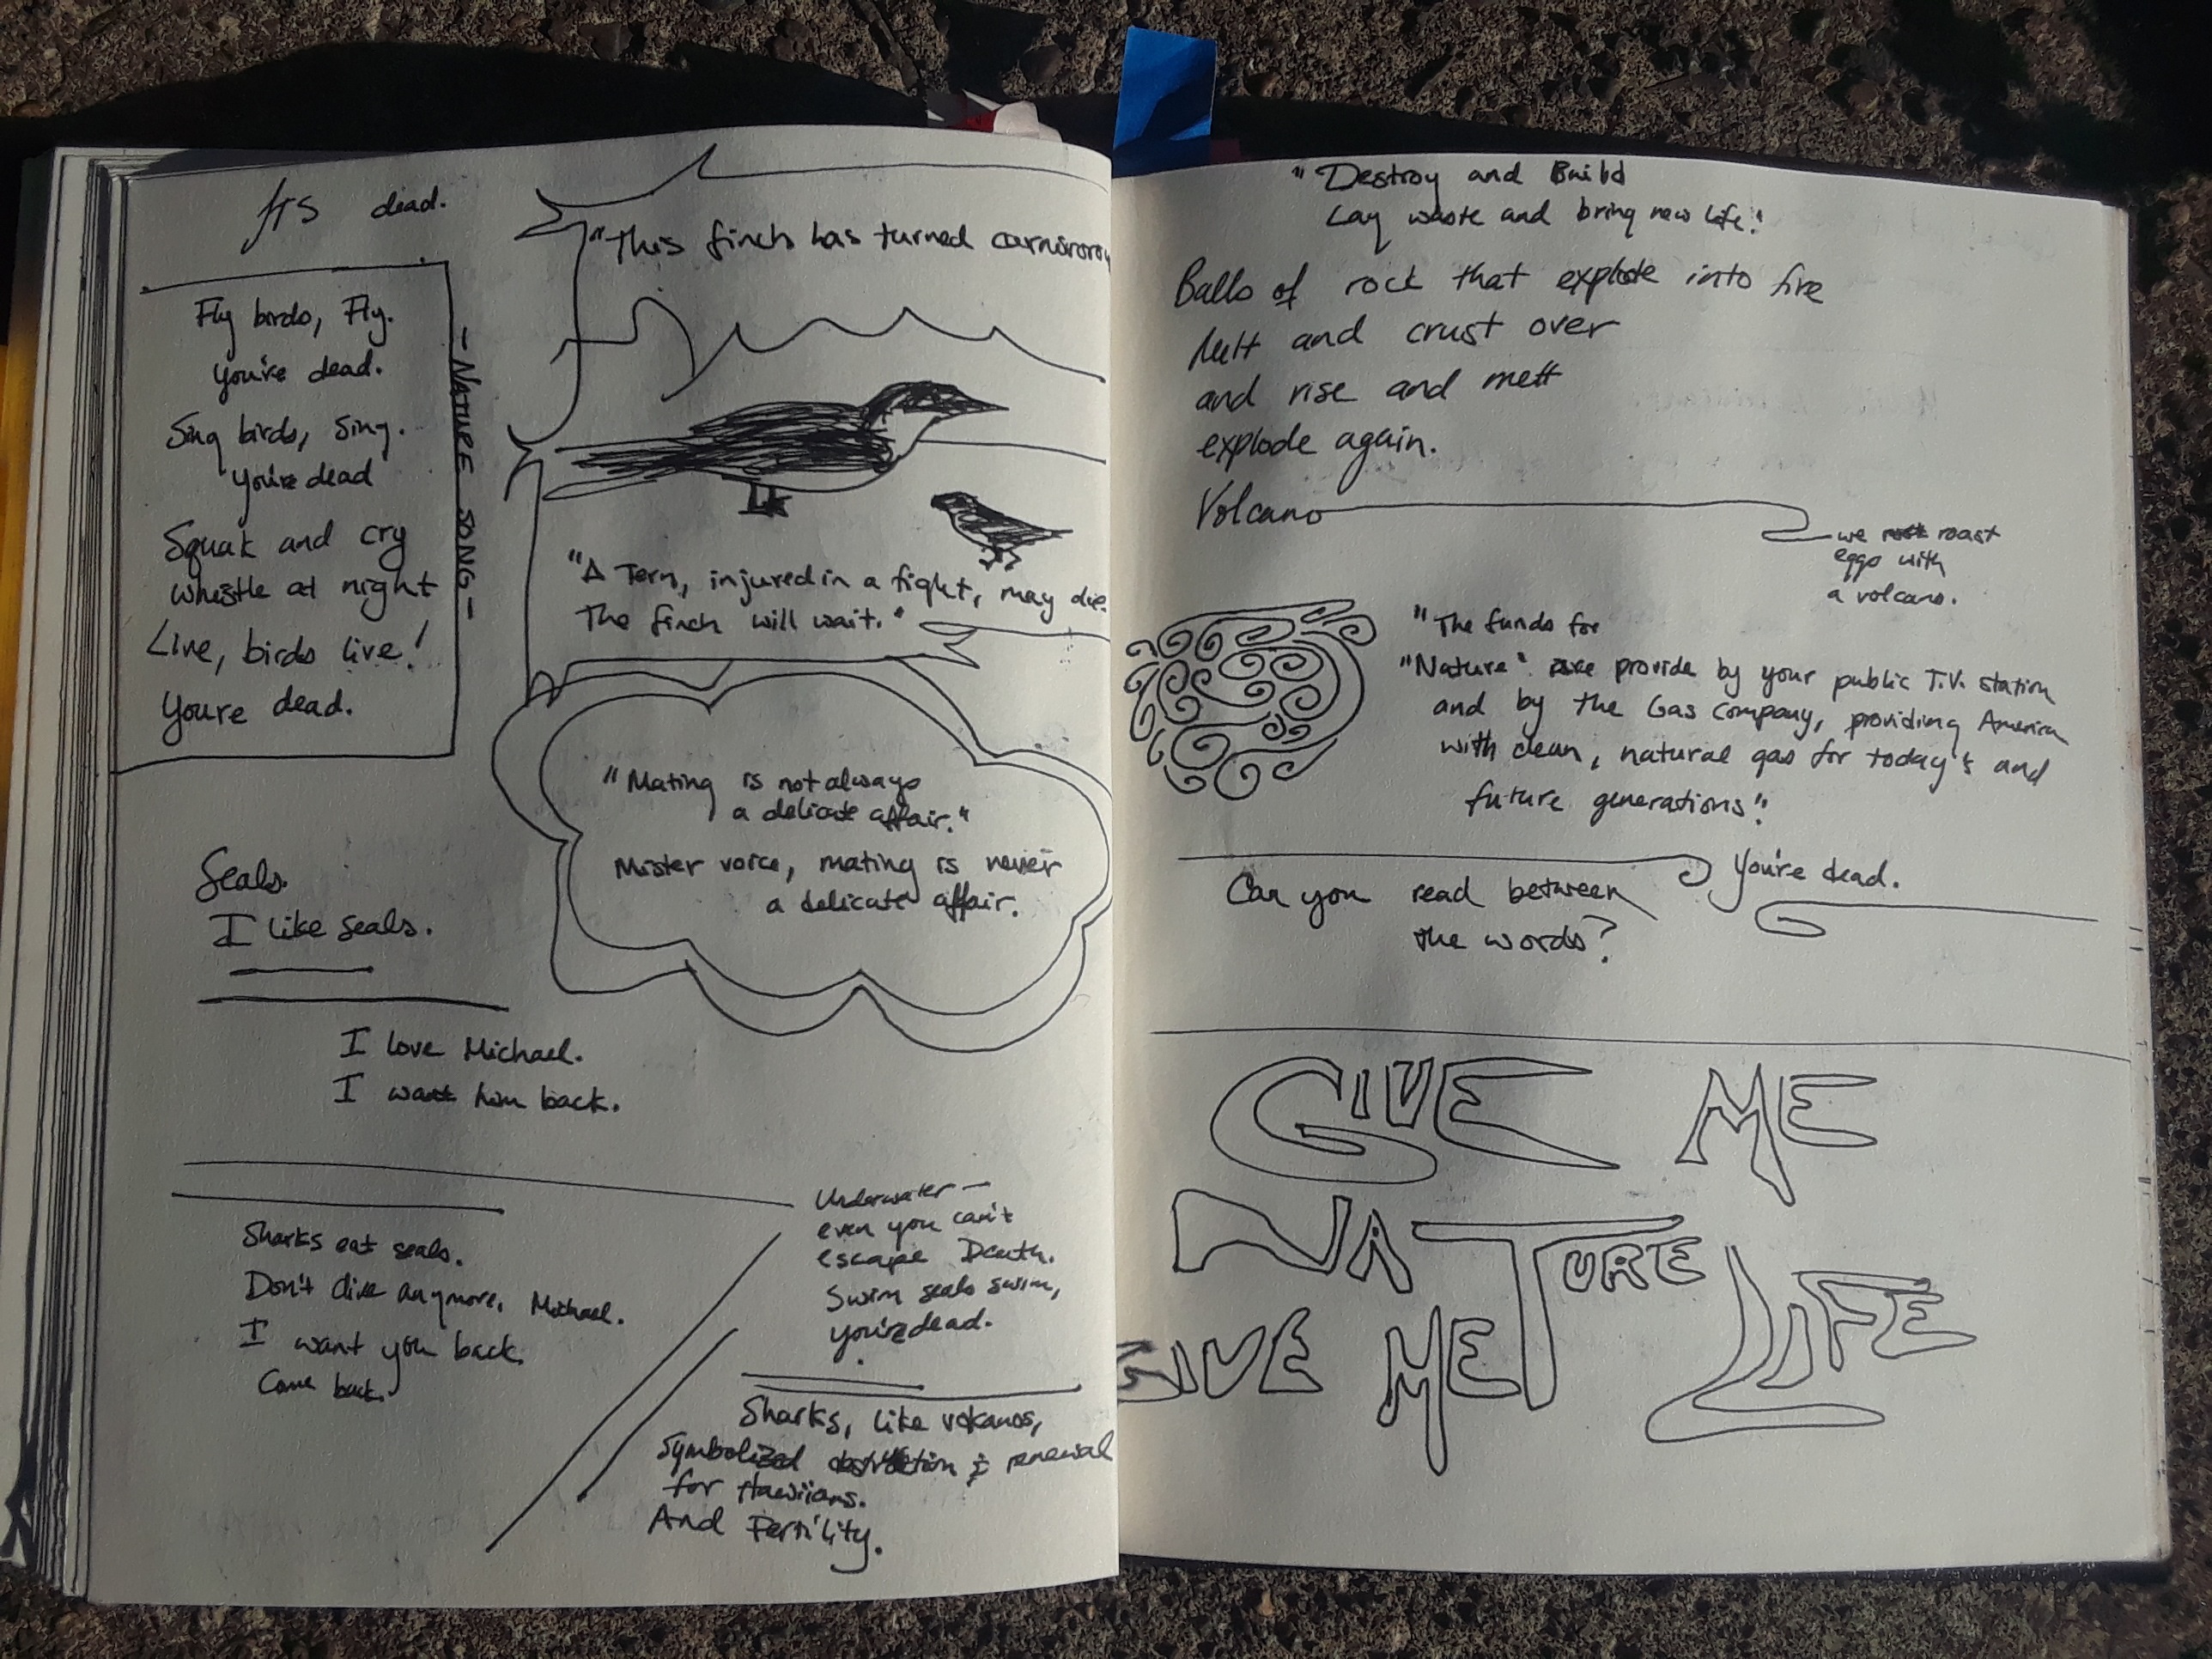 It's dead.
Fly birds, Fly.
You're dead.
Sing birds, Sing.
You're dead
Squak and cry
whistle at night
Live, birds live!
Youre dead.
- NATURE SONG -
"This finch has turned
"A Tern, injured in a fight, may die.
The finch will wait."
"Mating is not always
a delicate affair."
Mister voice, mating is never
a delicate affair.
Seals.
I like seals.
I love Michael.
I want him back.
Sharks eat seals.
Don't dive anymore, Michael.
I want you back.
Come back.
Underwater—
even you can't
escape Death.
Swim seals swim,
you're dead.
Sharks, like volcanos,
Symbolized & renewal
for Hawiians.
And Fertility.
"Destroy and Build
Lay waste and bring new life."
Balls of rock that explode into fire
Melt and crust over
and rise and melt
explode again.
Volcano
we roast
eggs with
a volcano.
"The funds for
"Nature" are provide by your public T.V. station
and by the Gas Company, providing America
with clean, natural gas for today's and
future generations".
You're dead.
Can you read between
the words?
GIVE ME
NATURE
GIVE ME LIFE